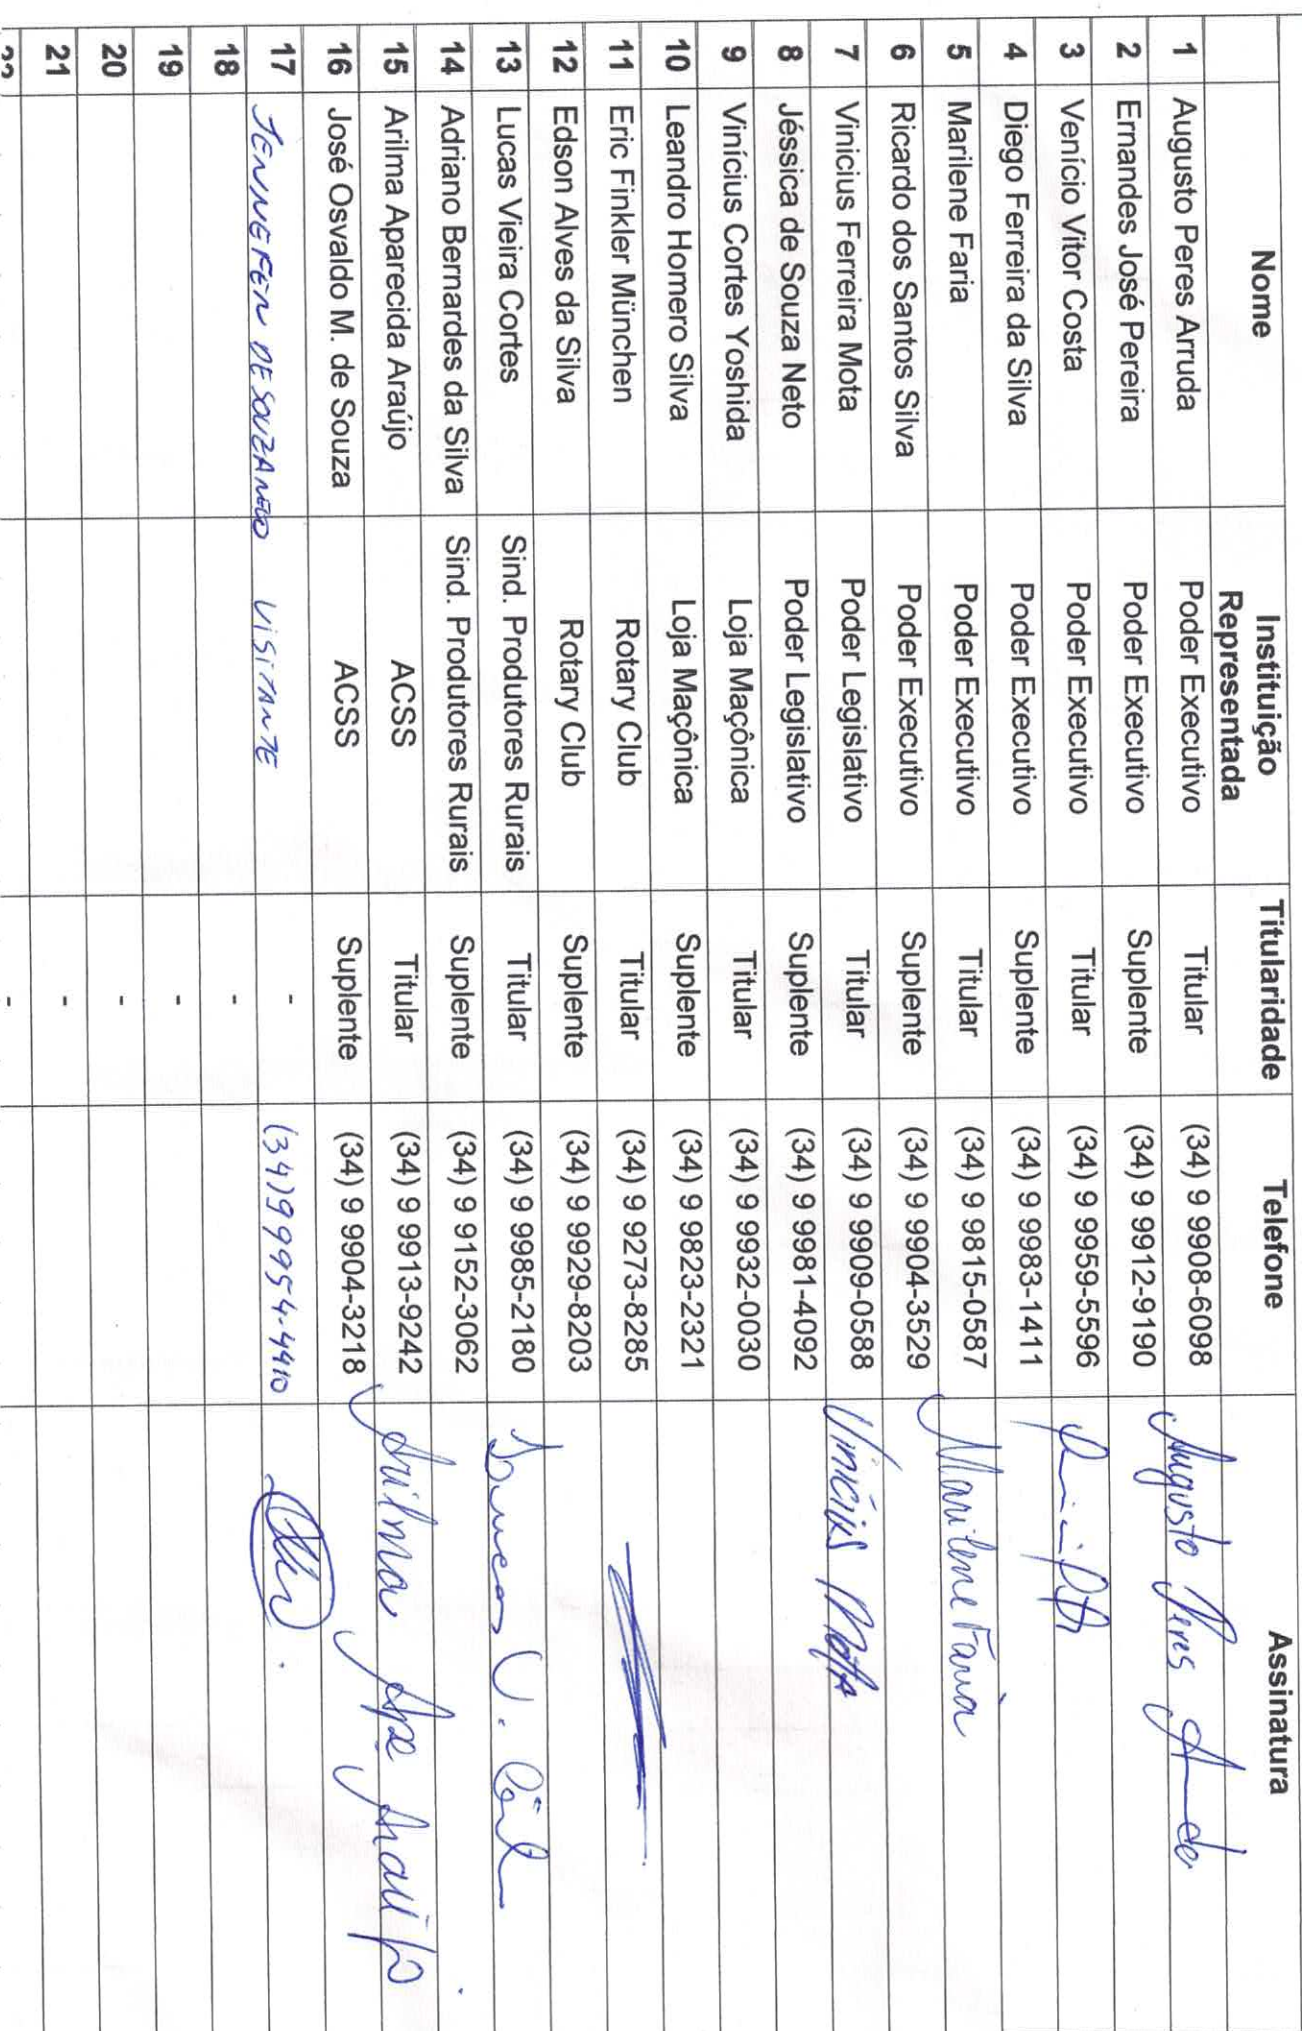 Nome Instituição Representada Titularidade Telefone Assinatura
1 Augusto Peres Arruda Poder Executivo Titular (34) 9 9908-6098 Augusto Peres
2 Ernandes José Pereira Poder Executivo Suplente (34) 9 9912-9190
3 Venício Vitor Costa Poder Executivo Titular (34) 9 9959-5596
4 Diego Ferreira da Silva Poder Executivo Suplente (34) 9 9983-1411
5 Marilene Faria Poder Executivo Titular (34) 9 9815-0587 Marilene Faria
6 Ricardo dos Santos Silva Poder Executivo Suplente (34) 9 9904-3529
7 Vinicius Ferreira Mota Poder Legislativo Titular (34) 9 9909-0588 Vinícius Motta
8 Jéssica de Souza Neto Poder Legislativo Suplente (34) 9 9981-4092
9 Vinícius Cortes Yoshida Loja Maçônica Titular (34) 9 9932-0030
10 Leandro Homero Silva Loja Maçônica Suplente (34) 9 9823-2321
11 Eric Finkler München Rotary Club Titular (34) 9 9273-8285
12 Edson Alves da Silva Rotary Club Suplente (34) 9 9929-8203
13 Lucas Vieira Cortes Sind. Produtores Rurais Titular (34) 9 9985-2180 Lucas V.
14 Adriano Bernardes da Silva Sind. Produtores Rurais Suplente (34) 9 9152-3062
15 Arilma Aparecida Araújo ACSS Titular (34) 9 9913-9242 Arilma Apª Araújo
16 José Osvaldo M. de Souza ACSS Suplente (34) 9 9904-3218
17 DE SOUZA VISITANTE - (34) 9 9954-4410
18 -
19 -
20 -
21 -
22 -